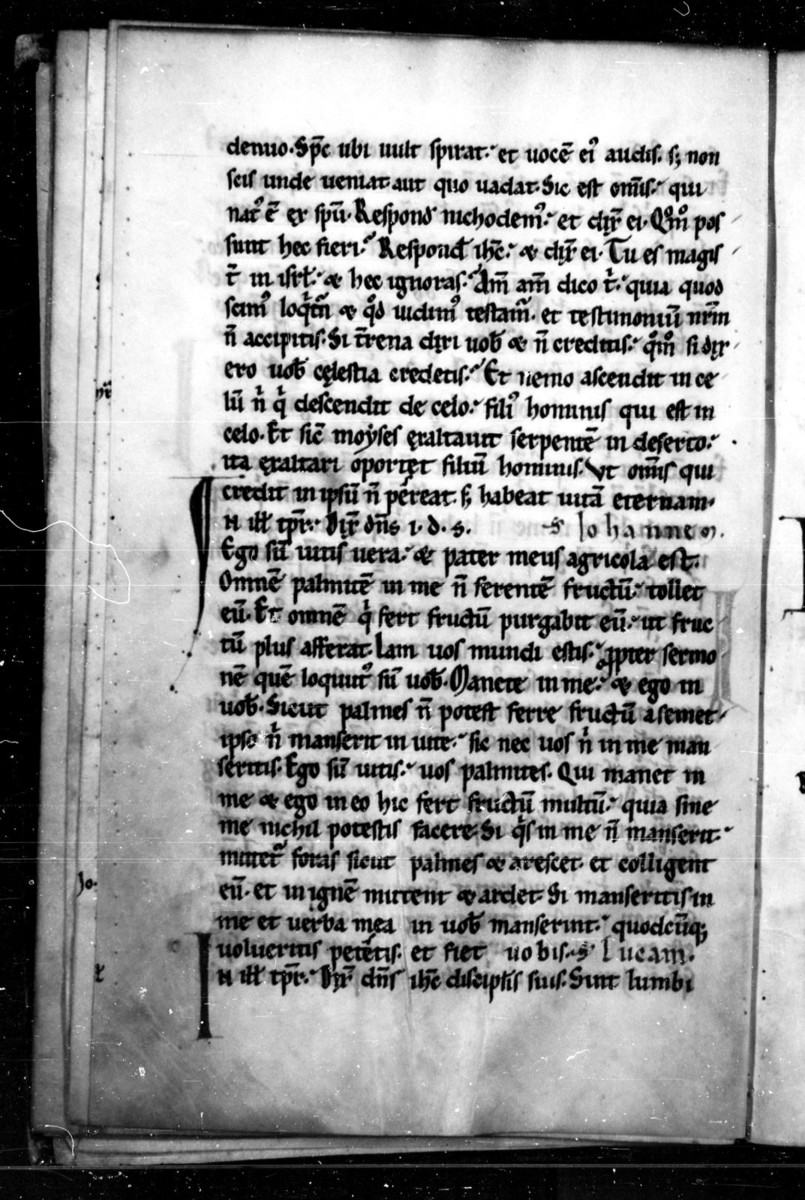 denuo. Sp̄c ubi uult spirat. et uocē ei᷒ audis. s; non
scis unde ueniat aut quo uadat. Sic est om̄is. qui
nat᷒ ē ex spū. Respond̄ nichodem᷒. et dix̄ ei. Qm̊ pos
sunt hec fieri. Respond̄ ih̄c. & dix̄ ei. Tu es magis
t̄ in isrl̄. & hec ignoras. Am̄ am̄ dico t̄. quia quod
scim᷒ loq̄m᷒ & qd̄ uidim᷒ testam᷒. et testimoniū nr̄m
n̄ accipitis. Si t̄rena dixi uob̄ & n̄ creditis. qm̊ si dix
ero uob̄ cęlestia credetis. Et nemo ascendit in ce
lū n̄ qͥ descendit de celo. fili᷒ hominis qui est in
celo. Et sic̄ moyses exaltauit serpentē in deserto.
ita exaltari oportet filiū hominis. Vt om̄is qui
credit in ipsū n̄ pereat. s; habeat uitā eternam.
IN ill̄ tp̄r. Dix̄ dn̄s i. d. s. S Iohannem.
Ego sū uitis uera. & pater meus agricola est.
Omnē palmitē in me n̄ ferentē fructū. tollet
eū. Et omnē qͥ fert fructū purgabit eū. ut fruc
tū plus afferat. Iam uos mundi estis. ꝓpter sermo
nē quē loquut᷒ sū uob̄. Manete in me. & ego in
uob̄. Sicut palmes n̄ potest ferre fructū a semet
ipso n̄ manserit in uite. sic nec uos n̄ in me man
seritis. Ego sū uitis. uos palmites. Qui manet in
me & ego in eo hic fert fructū multū. quia sine
me nichil potestis facere. Si qͥs in me n̄ manserit.
mittet᷒ foras sicut palmes & arescet. et colligent
eū. et in ignē mittent & ardet. Si manseritis in
me et uerba mea in uob̄ manserint. quodcūq;
uolueritis petetis. et fiet uobis. S Lucam.
IN ill̄ tp̄r. Dix̄ dn̄s ih̄c discipl̄is suis. Sint lumbi